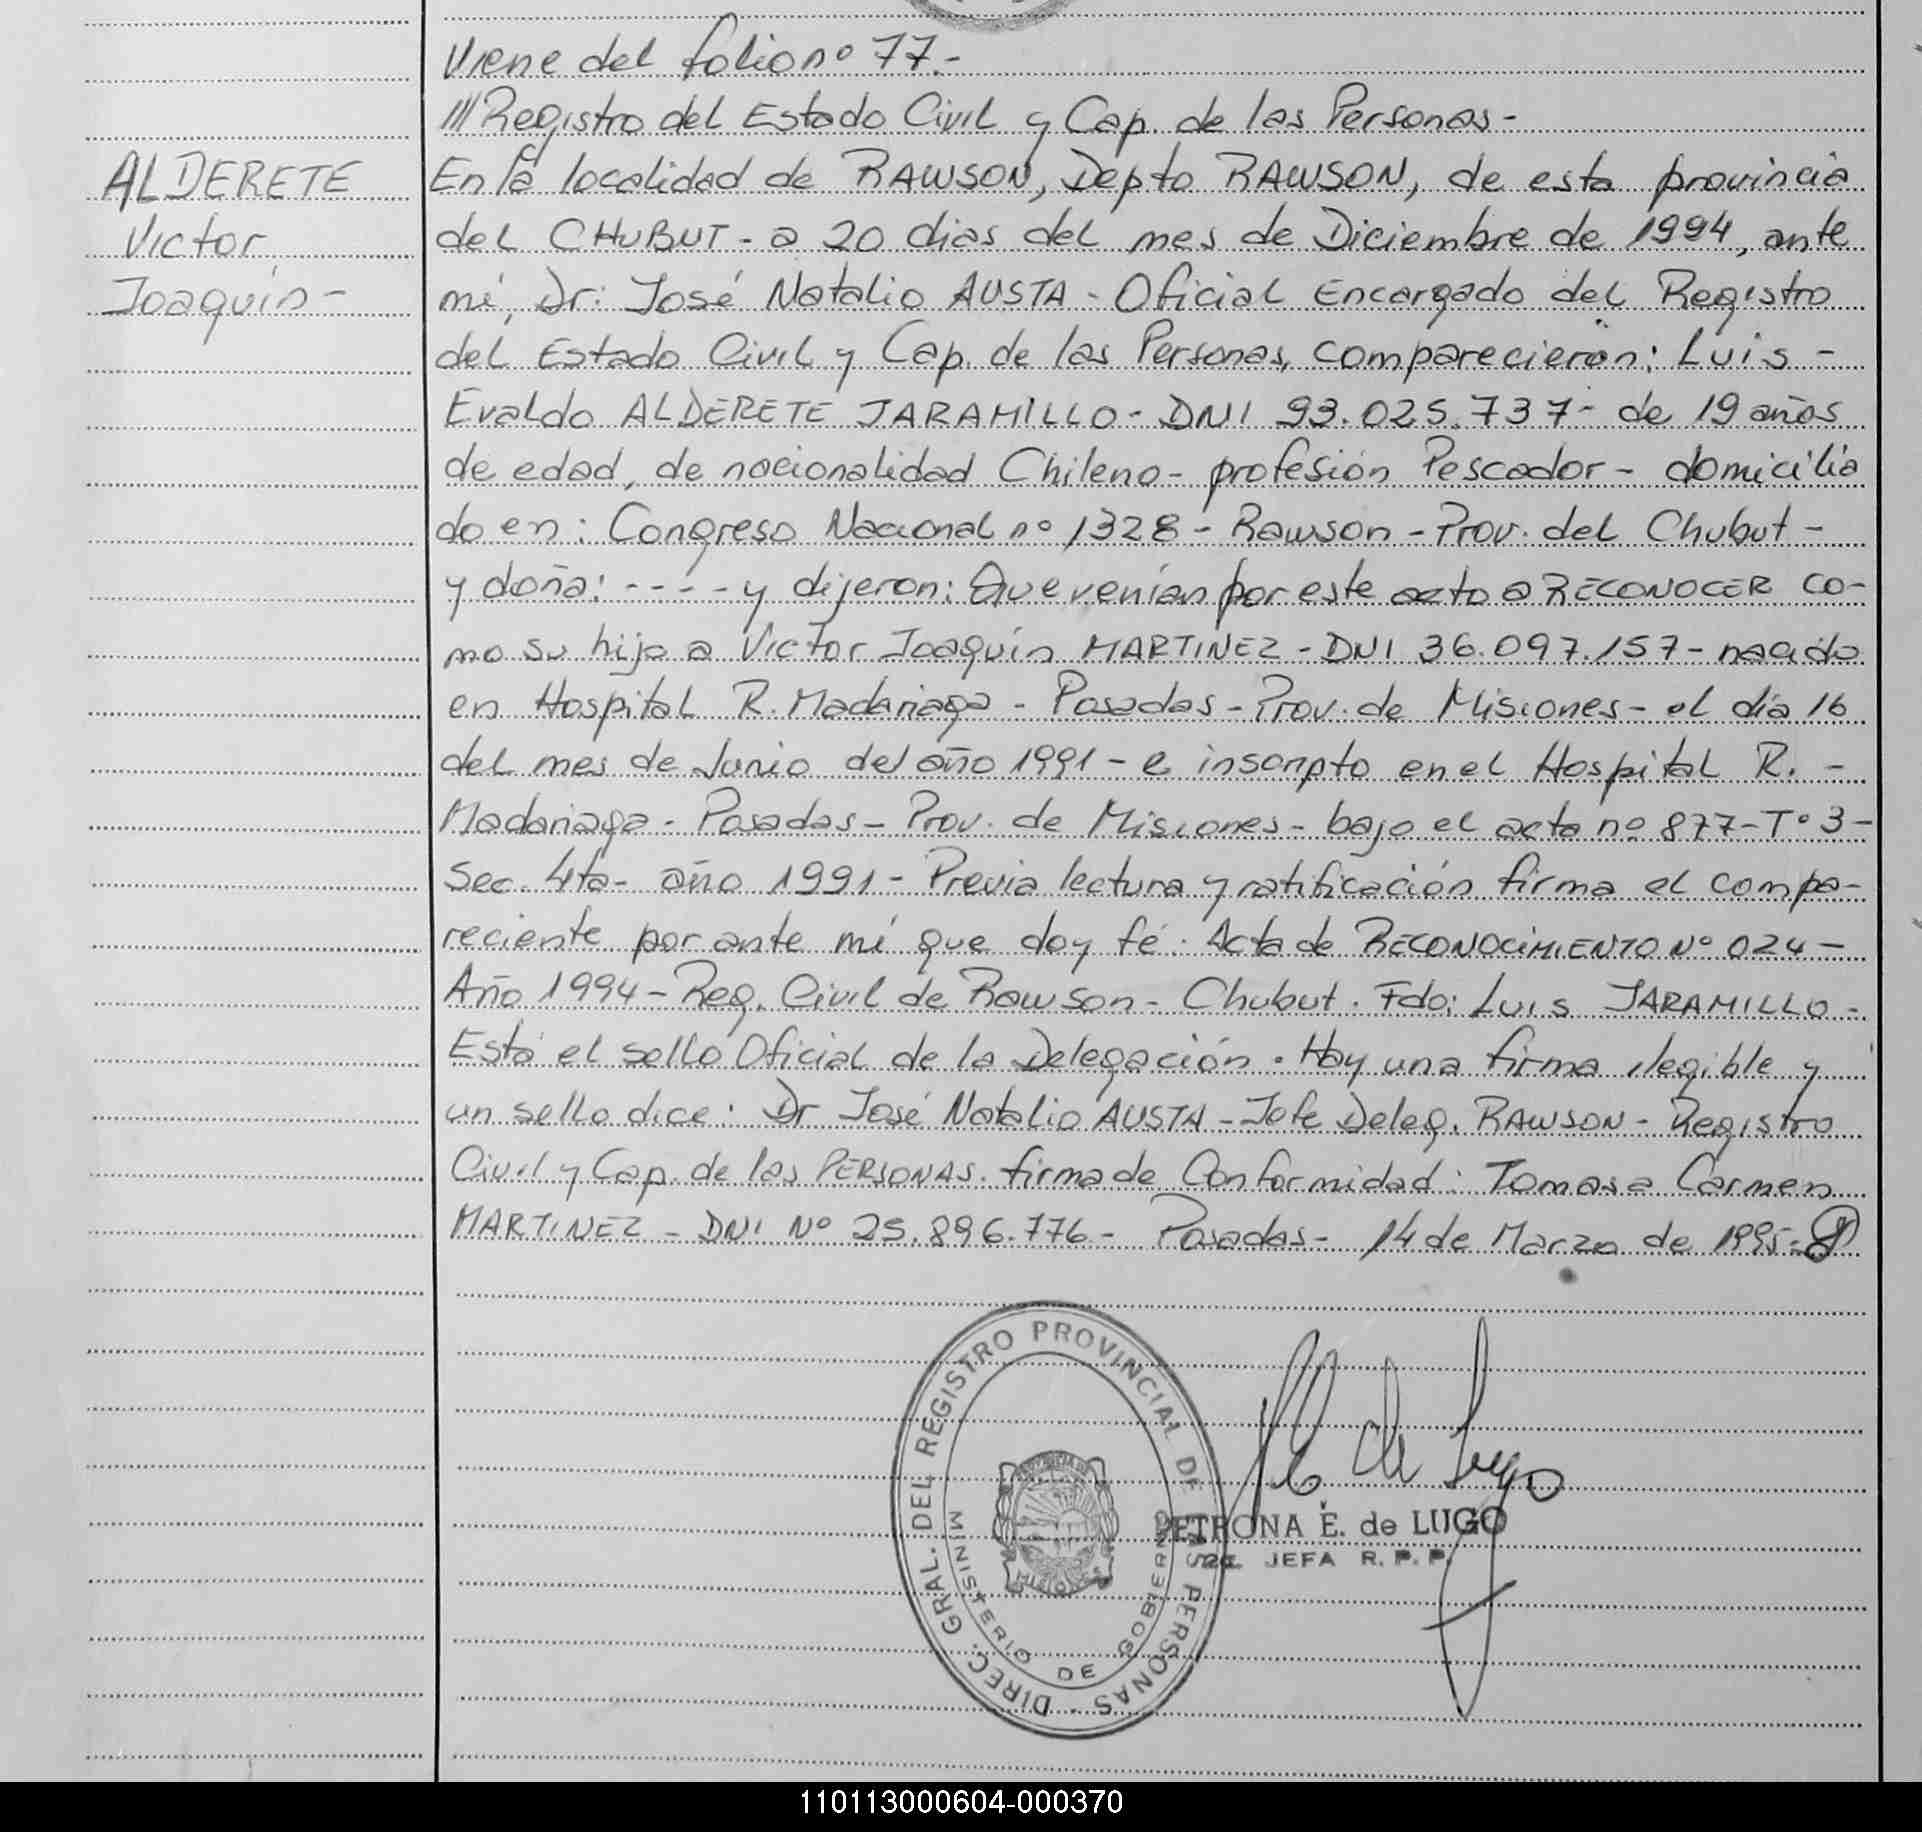 Viene del folio nº 77.-
///Registro del Estado Civil y Cap. de las Personas-
ALDERETE
Victor
Joaquín-
En la localidad de RAWSON, Depto RAWSON, de esta provincia
del CHUBUT- a 20 dias del mes de Diciembre de 1994, ante
mí, Dr: José Natalio AUSTA- Oficial Encargado del Registro
del Estado Civil y Cap. de las Personas, comparecieron: Luis-
Evaldo ALDERETE JARAMILLO- DNI 93.025.737- de 19 años
de edad, de nacionalidad Chileno- profesión Pescador- domicilia
do en: Congreso Nacional nº 1328- Rawson-Prov. del Chubut-
y doña: ---- y dijeron: Que venían por este acto a RECONOCER co-
mo su hijo a Victor Joaquín MARTINEZ-DNI 36.097.157- nacido
en Hospital R. Madariaga- Posadas-Prov. de Misiones- el día 16
del mes de Junio del año 1991- e inscripto en el Hospital R.-
Madariaga- Posadas- Prov. de Misiones- bajo el acta nº 877-Tº 3-
Sec. 4ta- año 1991- Previa lectura y ratificación firma el compa-
reciente por ante mí que doy fé. Acta de RECONOCIMIENTO Nº 024-
Año 1994-Reg. Civil de Rawson- Chubut. Fdo: Luis JARAMILLO-
Está el sello Oficial de la Delegación. Hay una firma ilegible y
un sello dice: Dr José Natalio AUSTA-Jefe Deleg. RAWSON-Registro
Civil y Cap. de las PERSONAS. firma de Conformidad: Tomasa Carmen
MARTINEZ- DNI Nº 25.896.776- Posadas- 14 de Marzo de 1995-
DIREC. GRAL. DEL REGISTRO PROVINCIAL DE LAS PERSONAS -
MINISTERIO DE GOBIERNO
PROVINCIA DE
MISIONES
de Lugo
PETRONA E. de LUGO
JEFA R. P. P.
110113000604-000370